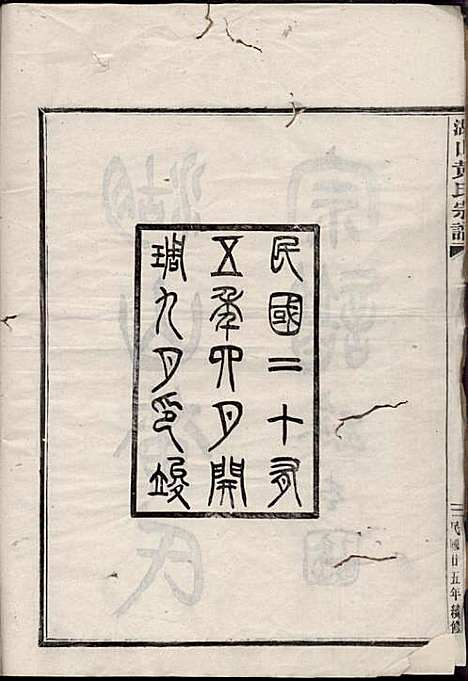 湖山黃氏宗譜
民國廿五年續修
民國二十有
五年四月開
琱九月印竣